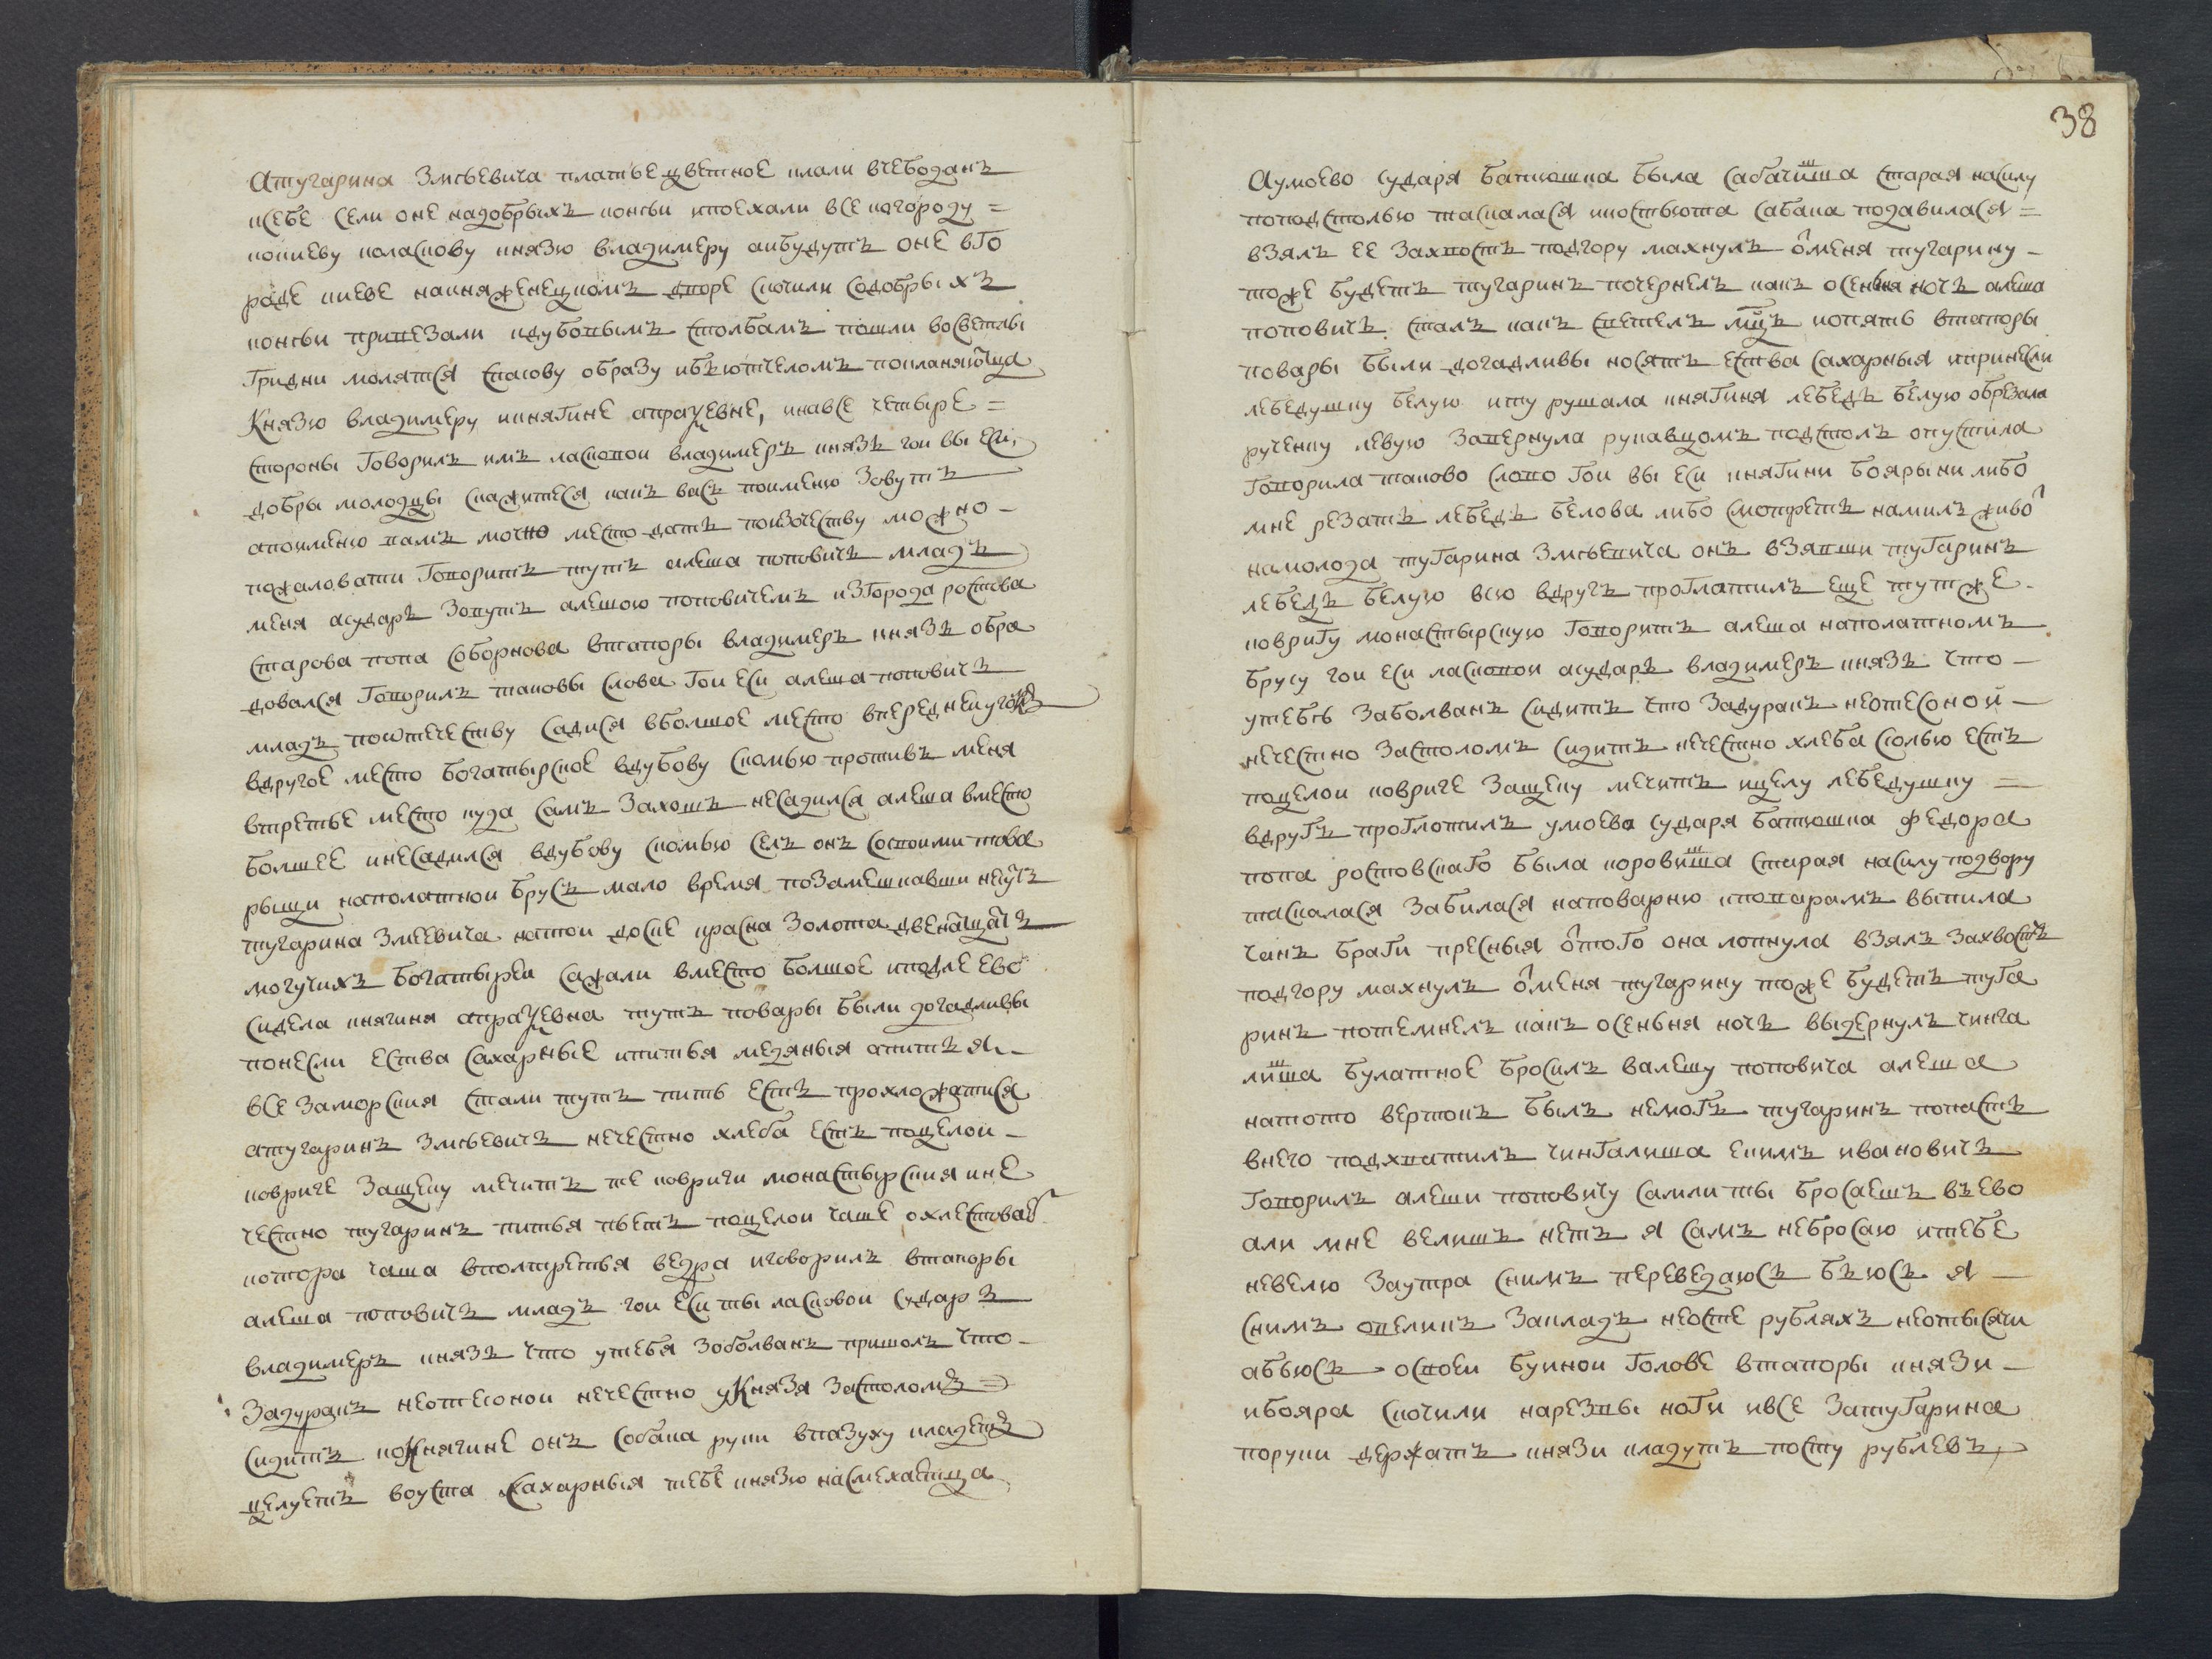 Атугарина Змѣевича платье цветное клали вчебоданъ
ксебе сели оне надобрыхъ конеи ипоехали все кгороду =
кокиеву коласкову князю владимеру аибудутъ оне вго
роде киеве накняженецкомъ дворе скочили содобрыхъ
конеи привезали кдубовымъ столбамъ пошли восветлы
гридни молятся спасову образу ибьютчеломъ покланяютца
Князю владимеру икнягине апраѯевне, инавсе четыре =
стороны говорилъ имъ ласковои владимеръ князъ гои вы еси,
добры молодцы скажитеся какъ васъ поимяню зовутъ
апоимяню вамъ мочно место датъ поизочеству можно –
пожаловати говоритъ тутъ алеша поповичъ младъ
меня асударъ зовутъ алешою поповичемъ изгорода ростова
старова попа соборнова втапоры владимеръ князъ обра
довался говорилъ таковы слова гои еси алеша поповичъ
младъ поѿтечеству садися вболшое место впереднеи уголокъ
вдругое место богатырское вдубову скомью противъ меня
втретье место куда самъ захошъ несадился алеша вместо
болшее инесадился вдубову скомью селъ онъ соспоими това
рыщи наполатнои брусъ мало время позамешкавши несутъ
тугарина Змеевича натои доске красна золота двенатцатъ
могучихъ богатыреи сажали вместо болшое иподле ево
сидела княгиня апраѯевна тутъ повары были догадливы
понесли ества сахарные ипитья медяныя апитья –
все заморския стали тутъ пить естъ прохлождатися
атугаринъ Змѣевичъ нечестно хлеба естъ поцелои –
ковриге защеку мечитъ те ковриги монастырския ине
чественно тугаринъ питья пьетъ поцелои чаше охлестоваетъ
котора чаша вполтретья ведра иговорилъ втапоры
алеша поповичъ младъ гои еси ты ласковои сударъ
владимеръ князъ что утебя зоболванъ пришолъ что –
задуракъ неотесонои нечестно уКнязя застоломъ =
сидитъ коКнягине онъ собака руки впазуху кладетъ
целуетъ воуста сахарныя тебе князю насмехаетца
38
Аумоево сударя батюшка была сабачища старая насилу
поподстолью таскалася икостьюта сабака подавилася =
взялъ ее захвостъ подгору махнулъ ѿменя тугарину –
тоже будетъ тугаринъ почернелъ какъ осенняя ночъ алеша
поповичъ сталъ какъ светелъ мѣцъ иопять втапоры
повары были догадливы носятъ ества сахарныя ипринесли
лебедушку белую иту рушала княгиня лебедъ белую обрезала
рученку левую завернула рукавцомъ подстолъ опустила
говорила таково слово гои вы еси княгини боярыни либо
мне резатъ лебедъ белова либо смотретъ намилъ живот
намолода тугарина Змѣевича онъ взявши тугаринъ
лебедъ белую всю вдругъ проглатилъ еще тутже –
ковригу монастырскую говоритъ алеша наполатномъ
брусу гои еси ласковои асударъ владимеръ князъ что –
утебѣ заболванъ сидитъ что задуракъ неотесонои –
нечестно застоломъ сидитъ нечестно хлеба солью естъ
поцелои ковриге защеку мечитъ ицелу лебедушку =
вдругъ проглотилъ умоево сударя батюшка федора
попа ростовскаго была коровища старая насилу подвору
таскалася забилася наповарню кповарамъ выпила
чанъ браги пресныя ѿтого она лопнула взялъ захвостъ
подгору махнулъ ѿменя тугарину тоже будетъ туга
ринъ потемнелъ какъ осенъня ночъ выдернулъ чинга
лища булатное бросилъ валешу поповича алеша
натото вертокъ былъ немогъ тугаринъ попастъ
внего подхватилъ чингалища екимъ ивановичъ
говорилъ алеши поповичу самли ты бросаешъ въево
али мне велишъ нетъ я самъ небросаю итебе
невелю заутра снимъ переведаюсъ бьюсъ я –
снимъ овеликъ закладъ неосте рубляхъ неотысячи
абьюсъ освоеи буинои голове втапоры князи –
ибояра скочили нарезвы ноги ивсе затугарина
поруки держатъ князи кладутъ посту рублевъ,